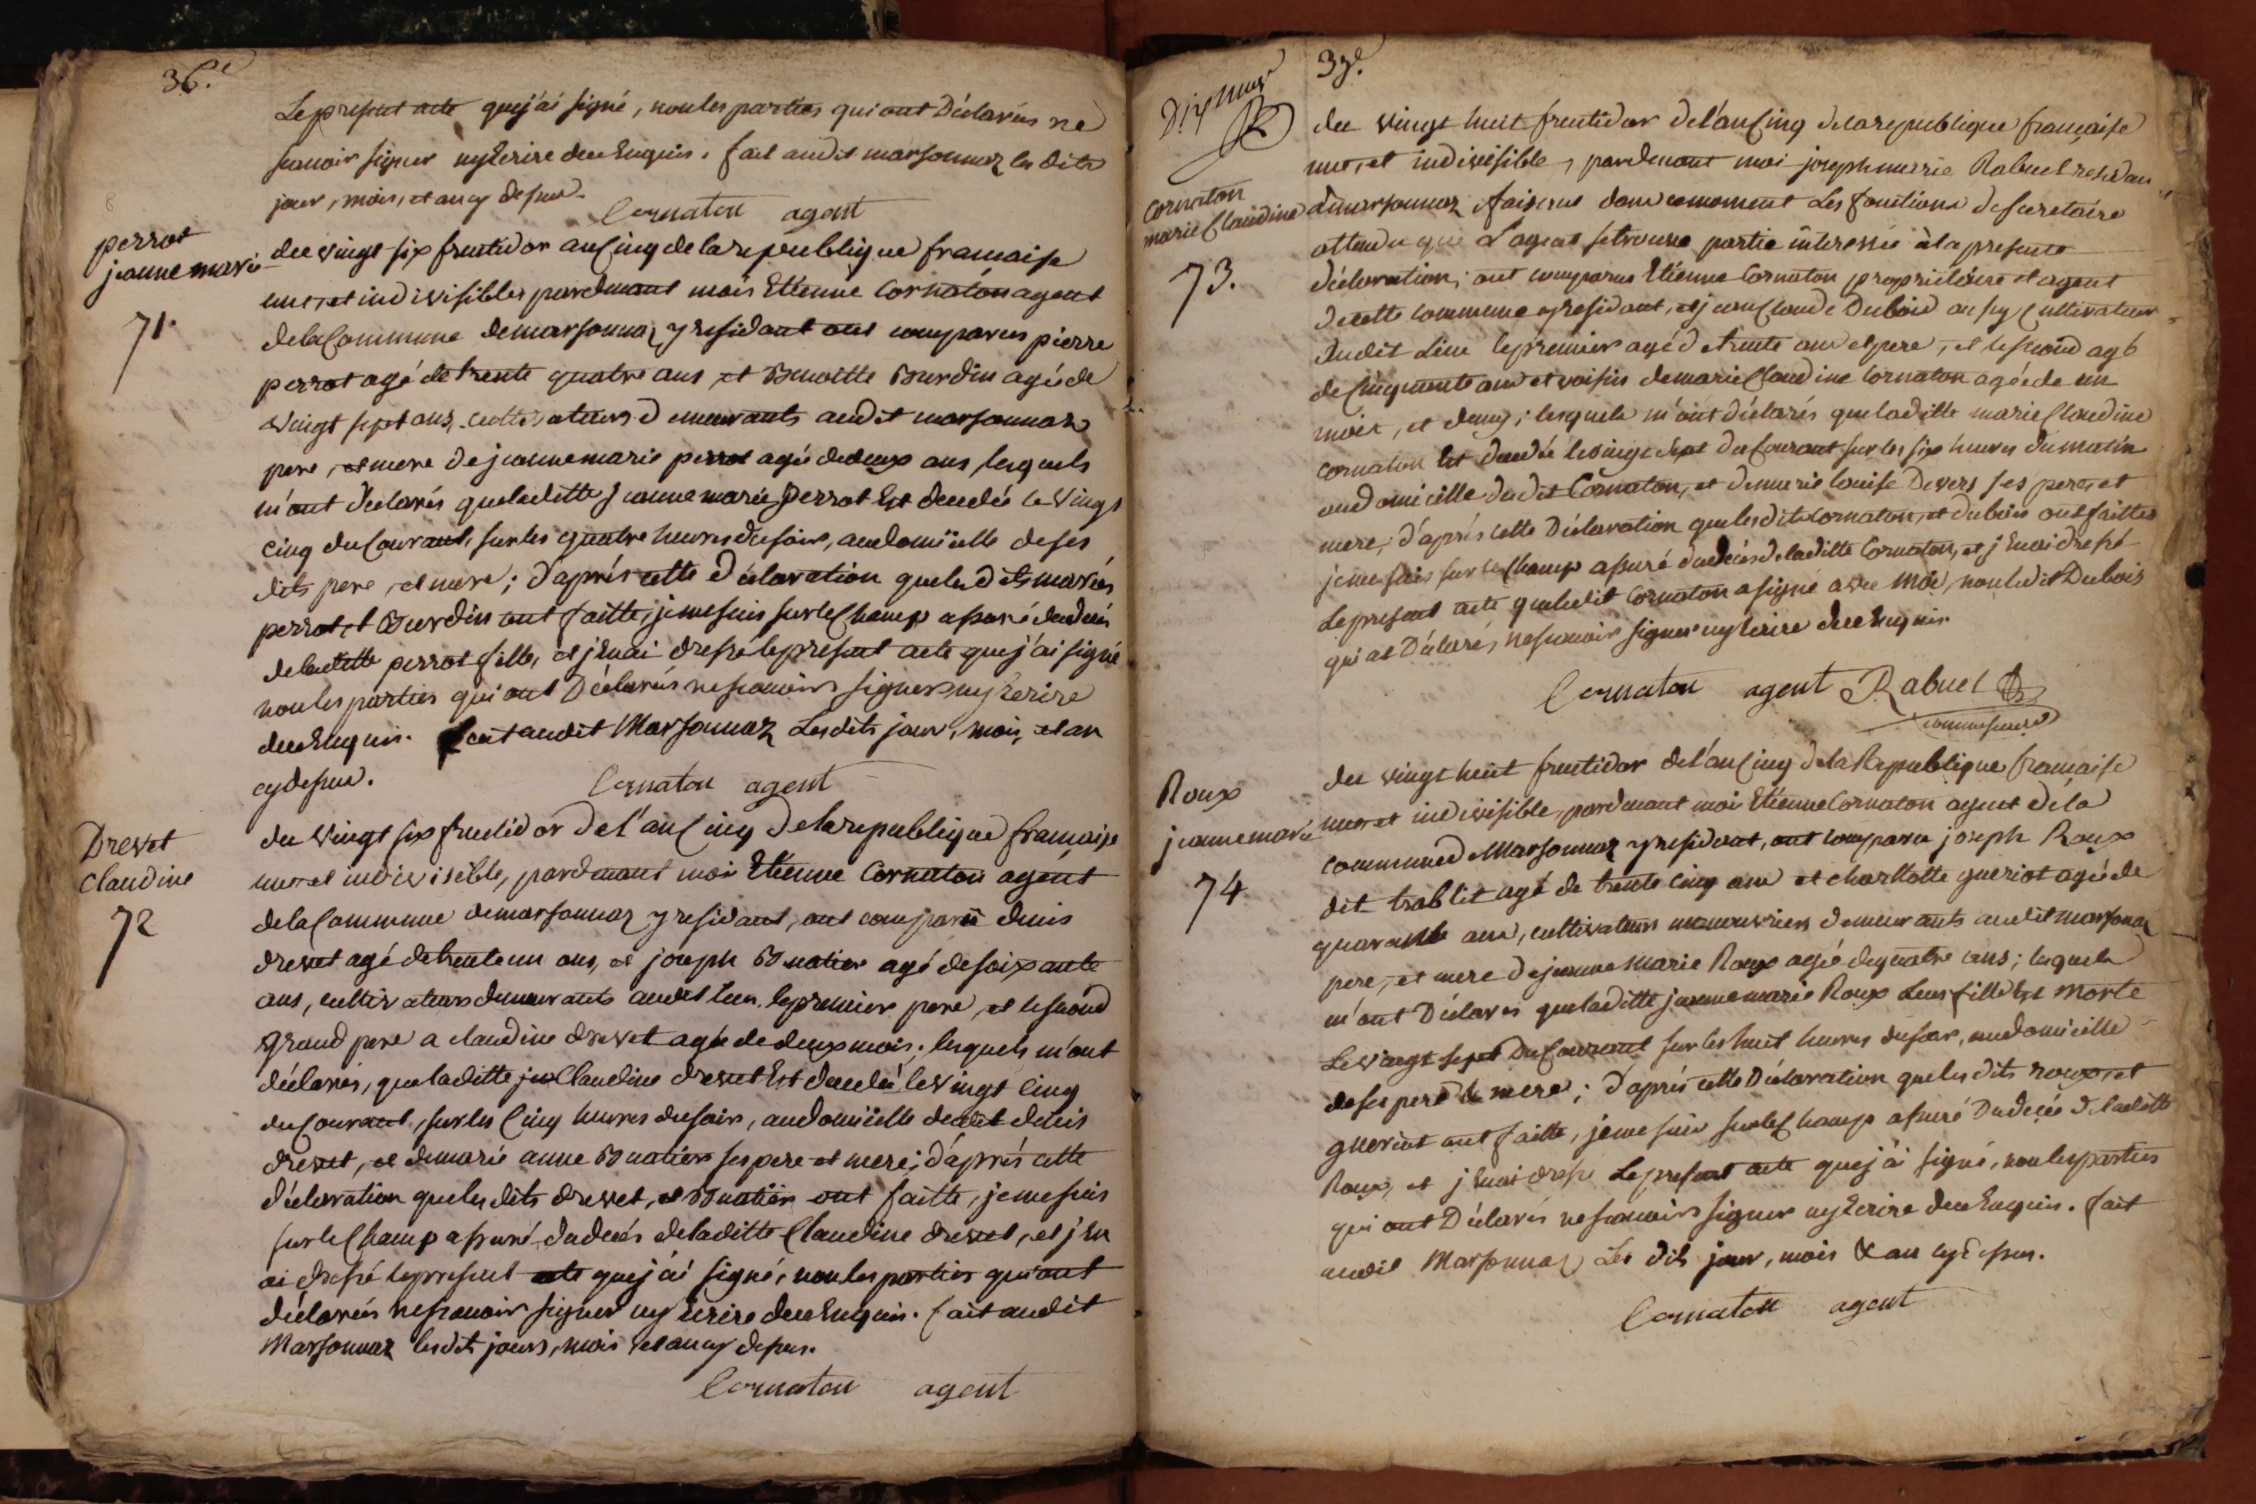 36.e
Le present acte que j'ai signé, non les parties qui ont Déclarés ne
scavoir signer ny Ecrire dee Enquis. fait audit marsonnaz les dits
jour, mois, et an cy dessus.
Cornaton agent
perrot
jeanne marie
71.
du vingt six fructidor an Cinq de la republique francaise
une, et indivisible, pardevant moi Etienne Cornaton agent
de la Commune de marsonnaz y residant ont comparus pierre
perrot agé de trente quatre ans, et Benoitte Bourdin agée de
vingt sept ans, cultivateurs demeurants audit marsonnaz
pere, et mere de jeanne marie perrot agée de deux ans, lesquels
m'ont déclarés que laditte jeanne marie perrot Est decedée le vingt
cinq du Courant, sur les quatre heures du soir, au domicille de ses
dits pere, et mere; d'aprés cette déclaration que les dits mariés
perrot, et Bourdin ont faitte, je me suis sur le Champ assuré du decés
de laditte perrot fille, et j'en ai dressé le present acte que j'ai signé
non les parties qui ont Déclarés ne scavoir signer ny Ecrire
dee Enquis. fait audit Marsonnaz Les dits jour, mois, et an
cy dessus.
Cornaton agent
Drevet
Claudine
72
du Vingt six fructidor de l'an Cinq de la republique francaise
une et indivisible, pardevant moi Etienne Cornaton agent
de la Commune de marsonnaz y residant, ont comparu denis
drevet agé de trente un ans, et joseph Bonatier agé de soixante
ans, cultivateurs demeurants audit lieu, le premier pere, et le second
grand pere a claudine drevet agée de deux mois; lesquels m'ont
déclarés, que laditte Claudine drevet Est decedée le vingt Cinq
du Courant, sur les Cinq heures du soir, au domicille dudit denis
drevet, et de marie anne Bonatier ses pere et mere; d'aprés cette
déclaration que les dits drevet, et Bonatier ont faitte, je me suis
sur le Champ assuré du decés de laditte Claudine drevet, et j'en
ai dressé le present acte que j'ai signé, non les parties qui ont
déclarés ne scavoir signer ny Ecrire dee Enquis. fait audit
Marsonnaz les dits jours, mois et an cy dessus.
Cornaton agent
37e.
Dix neuf
Cornaton
marie Claudine
73.
du vingt huit fructidor de l'an Cinq de la republique francaise
une, et indivisible, pardevant moi joseph marie Rabuel residant
a marsonnaz faisant dans ce moment Les fonctions de secretaire
attendu que L'agent se trouve partie interessée à la presente
déclaration; ont comparus Etienne Cornaton propriétaire et agent
de cette commune y residant, et jean Claude Dubois aussy Cultivateur
dudit Lieu le premier agé de trente ans et pere, et le second agé
de Cinquante ans et voisin de marie Claudine Cornaton agée de un
mois, et demy; lesquels m'ont déclarés que laditte marie Claudine
Cornaton Est decedée le vingt sept du Courant sur les six heures du matin
au domicille dudit Cornaton, et de marie louise Devers ses pere, et
mere, d'aprés cette Déclaration que les dits Cornaton, et dubois ont faitte
je me suis sur le Champ assuré du decés de laditte Cornaton, et j'en ai dressé
le present acte que ledit Cornaton a signé avec moi, non ledit Dubois
qui a Déclaré, ne scavoir signer ny Ecrire dee Enquis.
Cornaton agent Rabuel
Roux
jeanne marie
74
du vingt huit fructidor de l'an Cinq de la Republique francaise
une, et indivisible, pardevant moi Etienne Cornaton agent de la
commune de Marsonnaz y residant, ont comparu joseph Roux
dit trablit agé de trente cinq ans et charllotte gueriot agée de
quarante ans, cultivateurs manouvriers demeurants audit marsonnaz
pere, et mere de jeanne Marie Roux agée de quatre ans; lesquels
m'ont Déclarés que laditte jeanne marie Roux Leur fille Est Morte
Le vingt sept du Courant sur les huit heures du soir, au domicille
de ses pere & mere; d'aprés cette Déclaration que les dits roux, et
gueriot ont faitte, je me suis sur le Champ assuré du decés de laditte
Roux, et j'en ai dressé Le present acte que j'ai signé, non les parties
qui ont Déclarés ne scavoir signer ny Ecrire dee Enquis. fait
audit Marsonnaz Les dits jour, mois & an cy dessus.
Cornaton agent